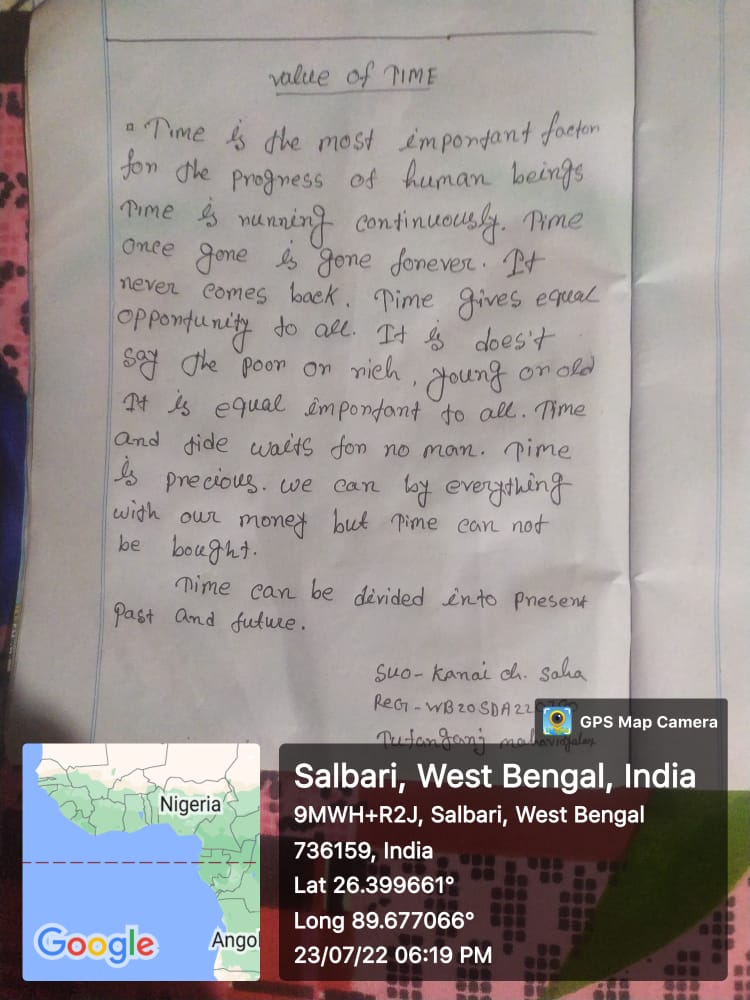 value of TIME
Time is the most important factor
for the progress of human beings
Time is running continuously. Time
once gone is gone forever. It
never comes back. Time gives equal
opportunity to all. It is does't
say the poor or rich, young or old
It is equal important to all. Time
and tide waits for no man. Time
is precious. we can by everything
with our money but Time can not
be bought.
Time can be divided into present
Past and future.
SUO- Kanai ch. Saha
REG - WB20SDA22
Tufanganj mahavidyalay
GPS Map Camera
Nigeria
Angol
Google
Salbari, West Bengal, India
9MWH+R2J, Salbari, West Bengal
736159, India
Lat 26.399661°
Long 89.677066°
23/07/22 06:19 PM